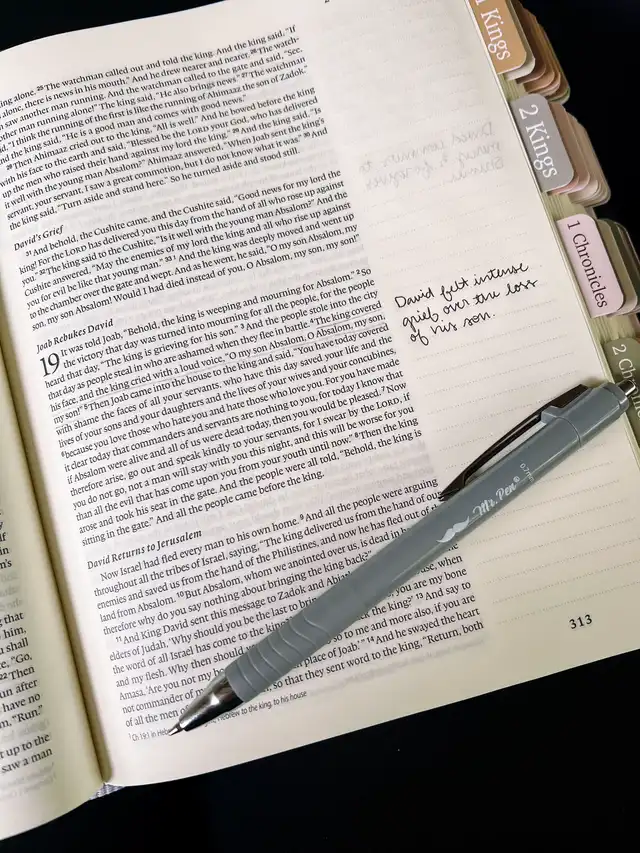 ing alone. 25 The watchman called out and told the king. And the king said, "If
alone, there is news in his mouth." And he drew nearer and nearer. 26 The watch-
saw another man running. And the watchman called to the gate and said, "See,
other man running alone!" The king said, "He also brings news." 27 The watchman
"I think the running of the first is like the running of Ahimaaz the son of Zadok."
d the king said, "He is a good man and comes with good news."
28 Then Ahimaaz cried out to the king, "All is well." And he bowed before the king
with his face to the earth and said, "Blessed be the LORD your God, who has delivered
up the men who raised their hand against my lord the king." 29 And the king said, "Is
it well with the young man Absalom?" Ahimaaz answered, "When Joab sent the king's
servant, your servant, I saw a great commotion, but I do not know what it was." 30 And
the king said, "Turn aside and stand here." So he turned aside and stood still.
David's Grief
31 And behold, the Cushite came, and the Cushite said, "Good news for my lord the
king! For the LORD has delivered you this day from the hand of all who rose up against
you." 32 The king said to the Cushite, "Is it well with the young man Absalom?" And the
Cushite answered, "May the enemies of my lord the king and all who rise up against
you for evil be like that young man." 33 1 And the king was deeply moved and went up
to the chamber over the gate and wept. And as he went, he said, "O my son Absalom, my
son, my son Absalom! Would I had died instead of you, O Absalom, my son, my son!"
Joab Rebukes David
19 It was told Joab, "Behold, the king is weeping and mourning for Absalom." 2 So
the victory that day was turned into mourning for all the people, for the people
heard that day, "The king is grieving for his son." 3 And the people stole into the city
that day as people steal in who are ashamed when they flee in battle. 4 The king covered
his face, and the king cried with a loud voice, "O my son Absalom, O Absalom, my son,
my son!" 5 Then Joab came into the house to the king and said, "You have today covered
with shame the faces of all your servants, who have this day saved your life and the
lives of your sons and your daughters and the lives of your wives and your concubines,
6 because you love those who hate you and hate those who love you. For you have made
it clear today that commanders and servants are nothing to you, for today I know that
if Absalom were alive and all of us were dead today, then you would be pleased. 7 Now
therefore arise, go out and speak kindly to your servants, for I swear by the LORD, if
you do not go, not a man will stay with you this night, and this will be worse for you
than all the evil that has come upon you from your youth until now." 8 Then the king
arose and took his seat in the gate. And the people were all told, "Behold, the king is
sitting in the gate." And all the people came before the king.
David Returns to Jerusalem
Now Israel had fled every man to his own home. 9 And all the people were arguing
throughout all the tribes of Israel, saying, "The king delivered us from the hand of our
enemies and saved us from the hand of the Philistines, and now he has fled out of the
land from Absalom. 10 But Absalom, whom we anointed over us, is dead in
therefore why do you say nothing about bringing the king back?"
11 And King David sent this message to Zadok and Abia use, when
elders of Judah, 'Why should you be the last to brin
the word of all Israel has come to the king? you are my bone
and my flesh. Why then should the king?' 13 And say to
Amasa, 'Are you not my so to me and more also, if you are
not commander of m place of Joab.'" 14 And he swayed the heart
of all the men o so that they sent word to the king, "Return, both
1 Ch 19:1 in Heb Hebrew to the king, to his house
that
him,
shall
"Go,
22 Then
run after
have no
m, "Run."
r up to the
saw a man
David felt intense
grief over the loss
of his son.
1 Kings
2 Kings
1 Chronicles
2 Ch
Mr. Pen®
0.7mm
313